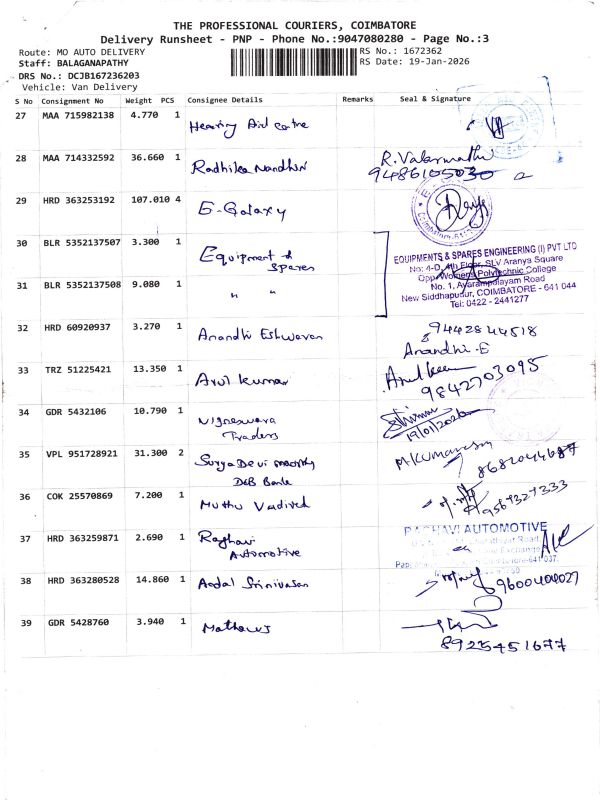 THE PROFESSIONAL COURIERS, COIMBATORE
Delivery Runsheet - PNP - Phone No.:9047080280 - Page No.:3
Route: MO AUTO DELIVERY RS No.: 1672362
Staff: BALAGANAPATHY RS Date: 19-Jan-2026
DRS No.: DCJB167236203
Vehicle: Van Delivery
S No Consignment No Weight PCS Consignee Details Remarks Seal & Signature
27 MAA 715982138 4.770 1 Hearing Aid centre
28 MAA 714332592 36.660 1 Radhika Nandhini R. Valarmathi
9486105030
29 HRD 363253192 107.010 4 E-Galaxy
30 BLR 5352137507 3.300 1 Equipment &
Spares
EQUIPMENTS & SPARES ENGINEERING (I) PVT LTD
No: 4-D, 4th Floor, SLV Aranya Square
Opp. Womens Polytechnic College
31 BLR 5352137508 9.080 1 " "
No. 1, Avarampalayam Road
New Siddhapudur, COIMBATORE - 641 044
Tel: 0422 - 2441277
32 HRD 60920937 3.270 1 Anandhi Eshwaran 9442844518
Anandhi-E
33 TRZ 51225421 13.350 1 Arul kumar
9842703095
34 GDR 5432106 10.790 1 Vigneswara
Traders
19/01/2026
35 VPL 951728921 31.300 2 Surya Devi moorthy
D&B Bank
M Kumaresan
8682044687
36 COK 25570869 7.200 1 Muthu Vadivel
37 HRD 363259871 2.690 1 Raghavi
Automotive
RAGHAVI AUTOMOTIVE
38 HRD 363280528 14.860 1 Aadal Srinivasan
9600404027
39 GDR 5428760 3.940 1 Mathews
8925451677